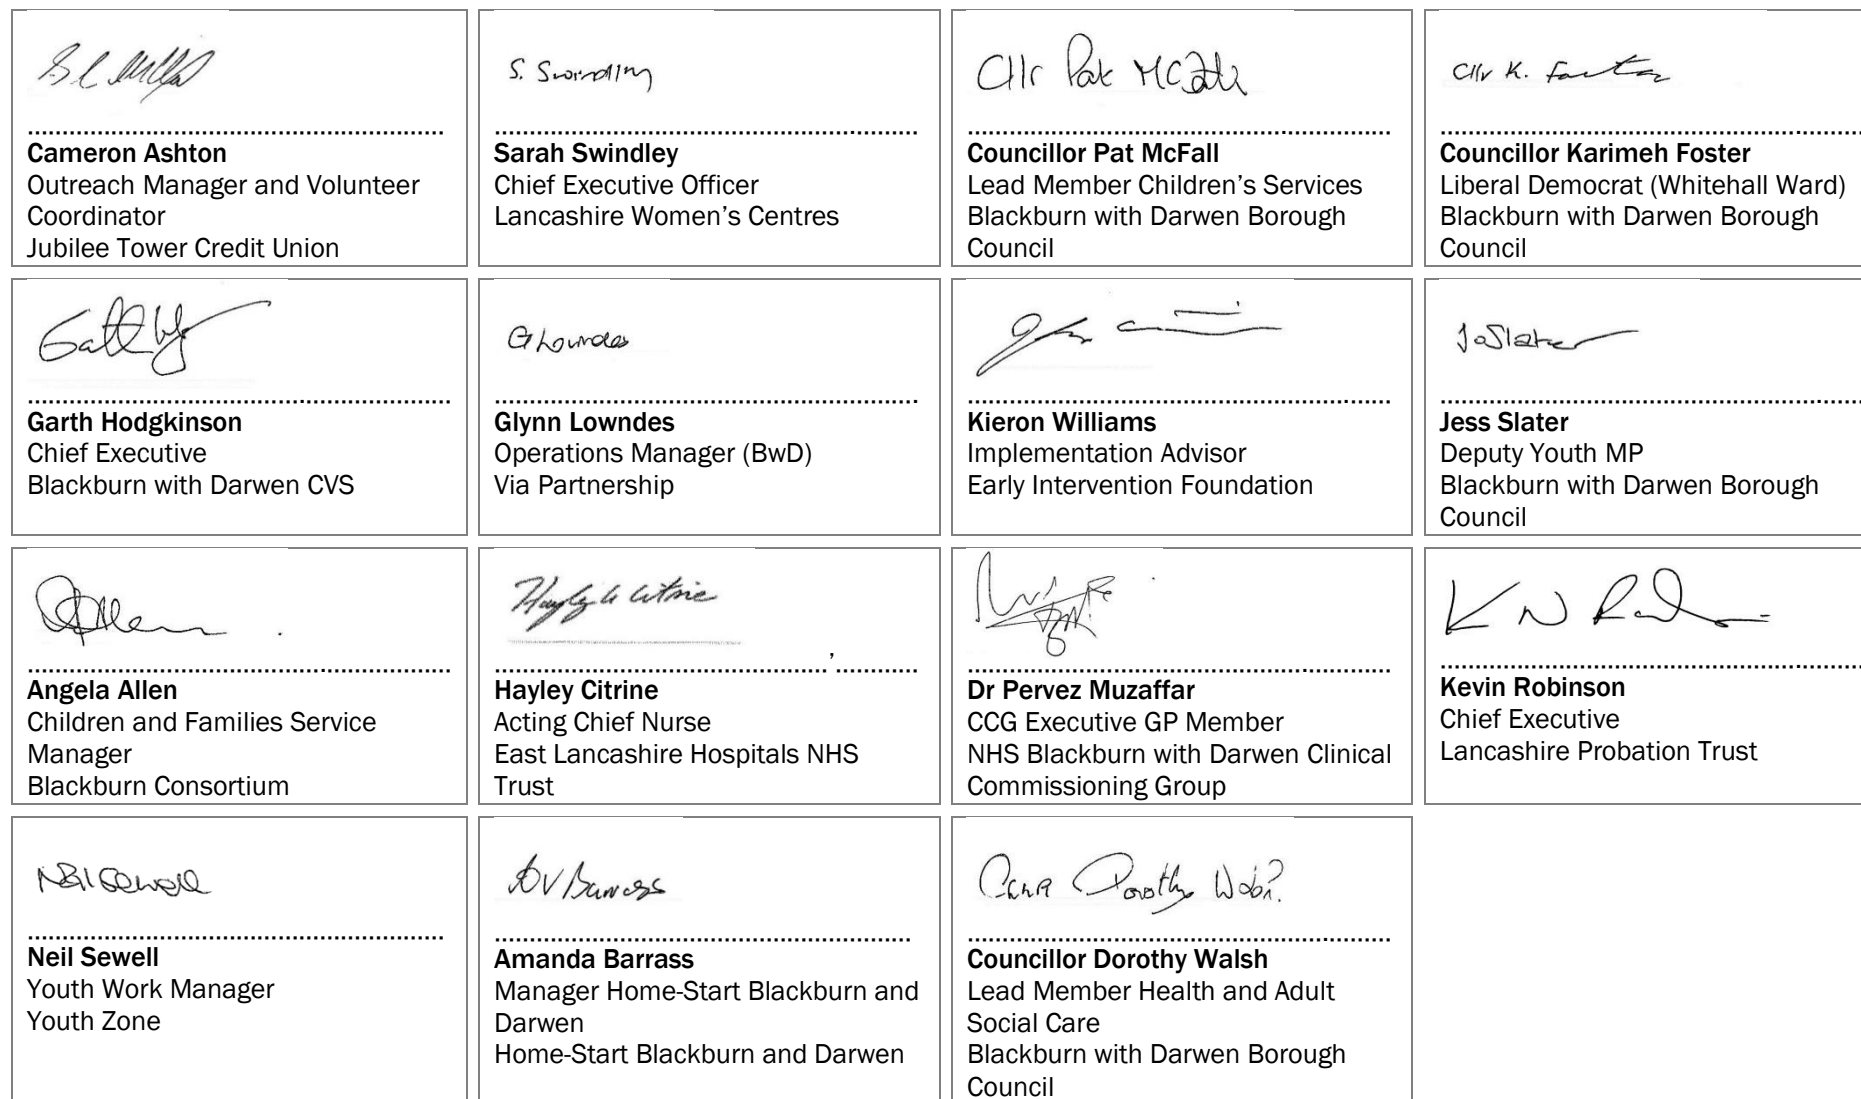 S. Swindley
Cllr Pat McFall
Cllr K. Foster
Cameron Ashton
Outreach Manager and Volunteer
Coordinator
Jubilee Tower Credit Union
Sarah Swindley
Chief Executive Officer
Lancashire Women's Centres
Councillor Pat McFall
Lead Member Children's Services
Blackburn with Darwen Borough
Council
Councillor Karimeh Foster
Liberal Democrat (Whitehall Ward)
Blackburn with Darwen Borough
Council
G Lowndes
Jo Slater
Garth Hodgkinson
Chief Executive
Blackburn with Darwen CVS
Glynn Lowndes
Operations Manager (BwD)
Via Partnership
Kieron Williams
Implementation Advisor
Early Intervention Foundation
Jess Slater
Deputy Youth MP
Blackburn with Darwen Borough
Council
Angela Allen
Children and Families Service
Manager
Blackburn Consortium
Hayley Citrine
Acting Chief Nurse
East Lancashire Hospitals NHS
Trust
Dr Pervez Muzaffar
CCG Executive GP Member
NHS Blackburn with Darwen Clinical
Commissioning Group
Kevin Robinson
Chief Executive
Lancashire Probation Trust
Neil Sewell
Neil Sewell
Youth Work Manager
Youth Zone
Amanda Barrass
Manager Home-Start Blackburn and
Darwen
Home-Start Blackburn and Darwen
Councillor Dorothy Walsh
Lead Member Health and Adult
Social Care
Blackburn with Darwen Borough
Council